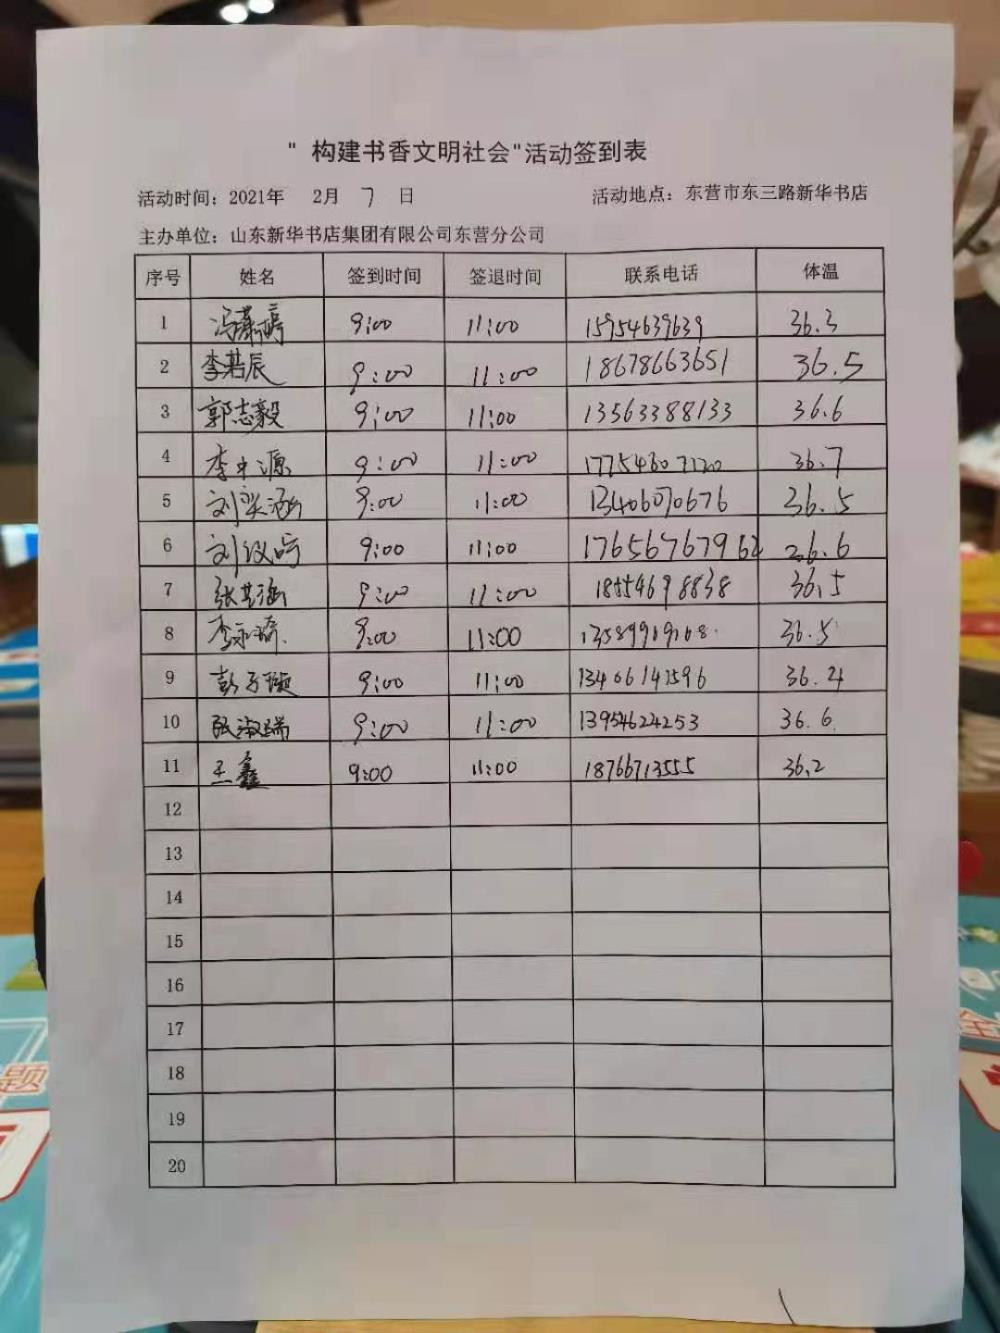 " 构建书香文明社会"活动签到表
活动时间：2021年 2月 7 日 活动地点：东营市东三路新华书店
主办单位：山东新华书店集团有限公司东营分公司
序号 姓名 签到时间 签退时间 联系电话 体温
1 冯潇婷 9:00 11:00 15954639639 36.3
2 李若辰 9:00 11:00 18678663651 36.5
3 郭志毅 9:00 11:00 13563388133 36.6
4 李中源 9:00 11:00 17754607120 36.7
5 刘奕涵 9:00 11:00 13406070676 36.5
6 刘 9:00 11:00 17656767962 26.6
7 张艺涵 9:00 11:00 18554698838 36.5
8 李永琦 9:00 11:00 36.5
9 彭子璇 9:00 11:00 13406141596 36.4
10 张淑瑞 9:00 11:00 13954624253 36.6
11 王鑫 9:00 11:00 18766713555 36.2
12
13
14
15
16
17
18
19
20
题